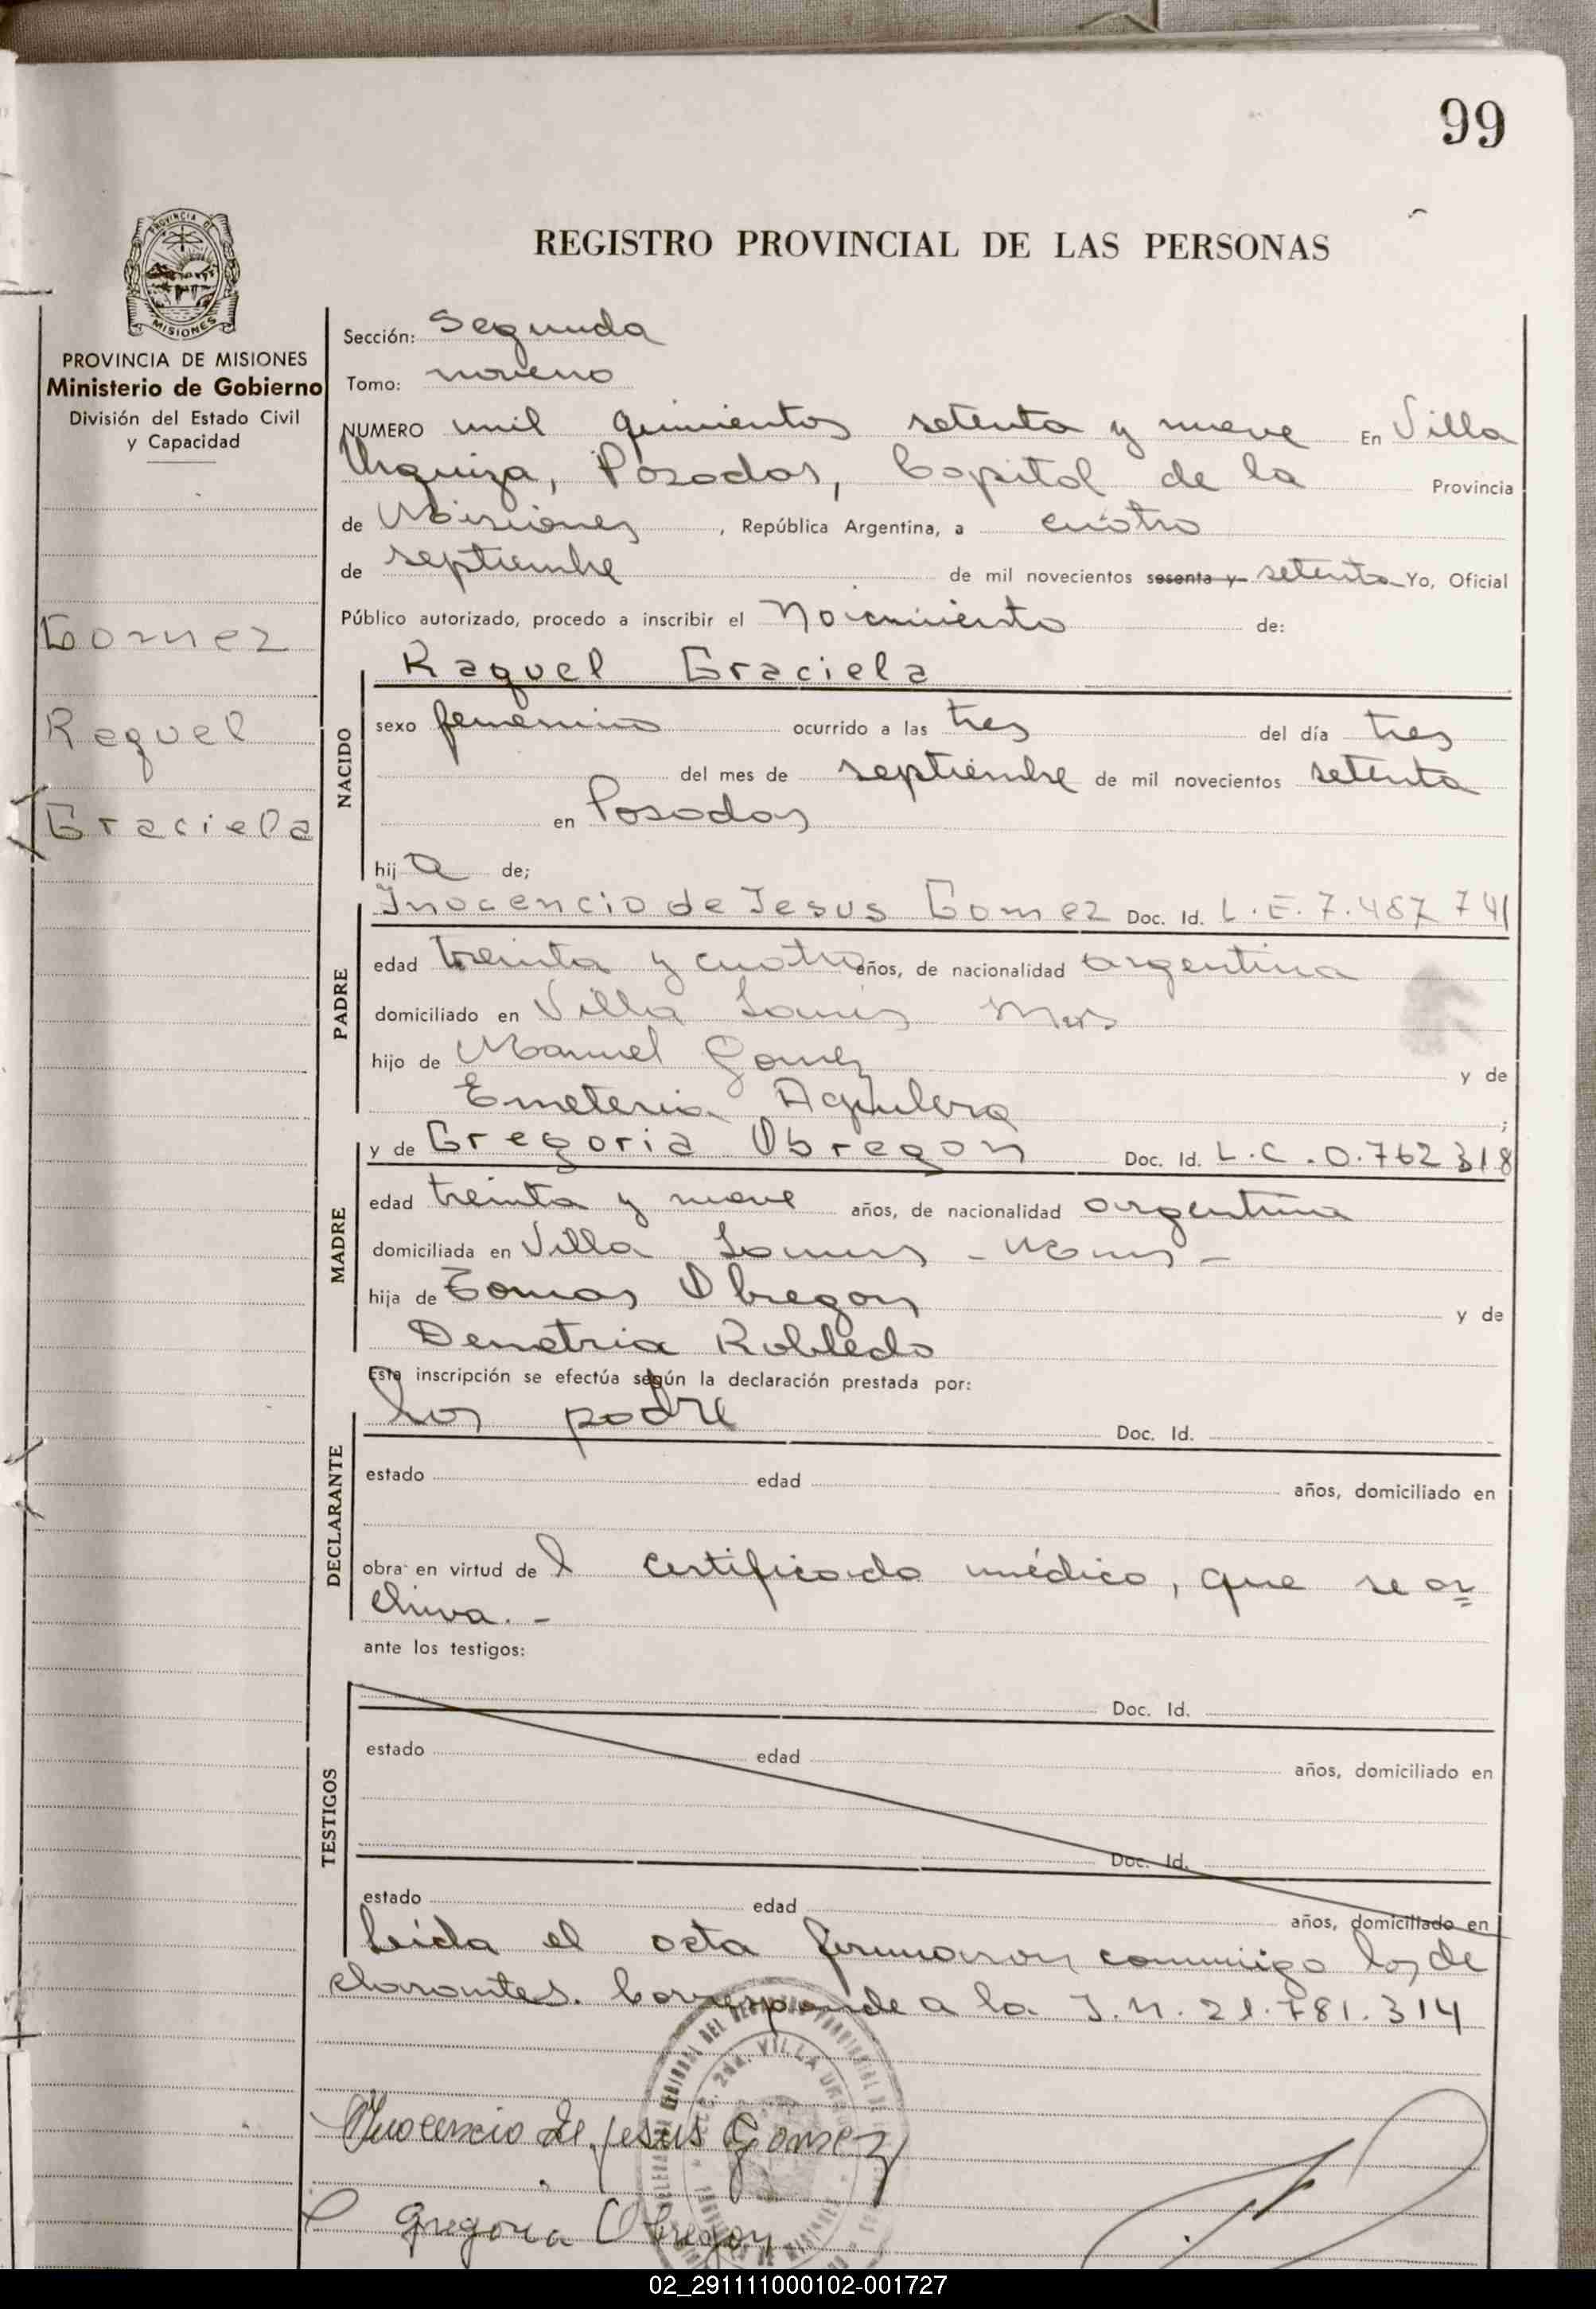 99
REGISTRO PROVINCIAL DE LAS PERSONAS
PROVINCIA DE MISIONES
Ministerio de Gobierno
División del Estado Civil
y Capacidad
Gomez
Raquel
Graciela
Sección: Segunda
Tomo: noveno
NUMERO mil quinientos setenta y nueve En Villa
Urquiza, Posadas, Capital de la Provincia
de Misiones, República Argentina, a cuatro
de septiembre de mil novecientos sesenta y setenta Yo, Oficial
Público autorizado, procedo a inscribir el Nacimiento de:
NACIDO
Raquel Graciela
sexo femenino ocurrido a las tres del día tres
del mes de septiembre de mil novecientos setenta
en Posadas
hij a de;
PADRE
Inocencio de Jesus Gomez Doc. Id. L.E. 7.487 741
edad treinta y cuatro años, de nacionalidad argentina
domiciliado en Villa
hijo de Manuel Gomez y de
Emeteria Aguilera;
MADRE
y de Gregoria Obregon Doc. Id. L.C. 0.762 318
edad treinta y nueve años, de nacionalidad argentina
domiciliada en Villa
hija de Tomas Obregon y de
Demetria Robledo
Esta inscripción se efectúa según la declaración prestada por:
DECLARANTE
los padre Doc. Id.
estado edad años, domiciliado en
obra en virtud de l certificado médico, que se ar
chiva.-
ante los testigos:
TESTIGOS
Doc. Id.
estado edad años, domiciliado en
Doc. Id.
estado edad años, domiciliado en
Leida el acta firmaron conmigo los de
clarantes. Corresponde a la I.N. 21.781.314
Inocencio de jesus Gomez
Gregoria Obregon
02_291111000102-001727